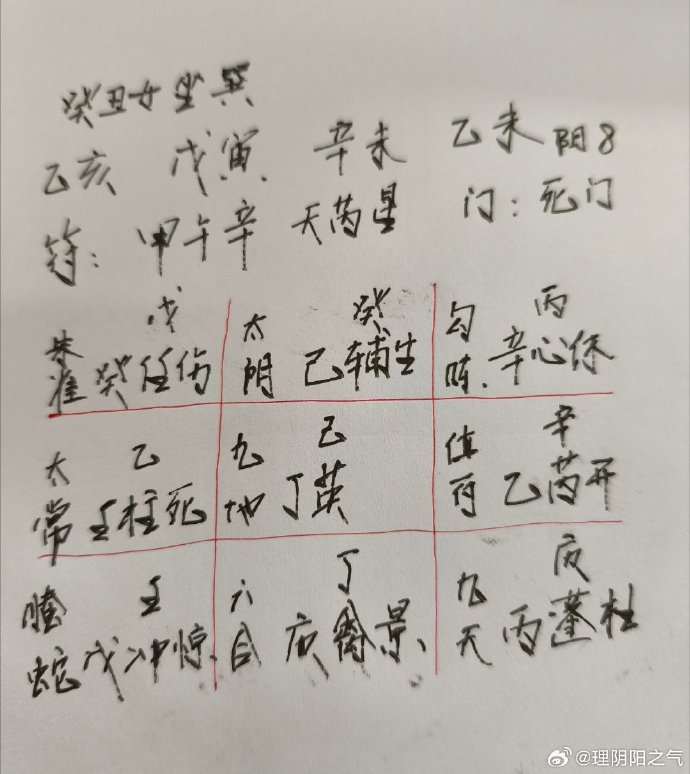 癸丑女坐巽
乙亥 戊寅 辛未 乙未 阴8
符：甲午辛 天芮星 门：死门
戊 太 癸 勾 丙
朱雀 癸任伤 阴 己辅生 陈 辛心休
太 乙 九 己 值 辛
常 壬柱死 地 丁英 符 乙芮开
螣 壬 六 丁 九 庚
蛇 戊冲惊 合 庚禽景 天 丙蓬杜
@理阴阳之气